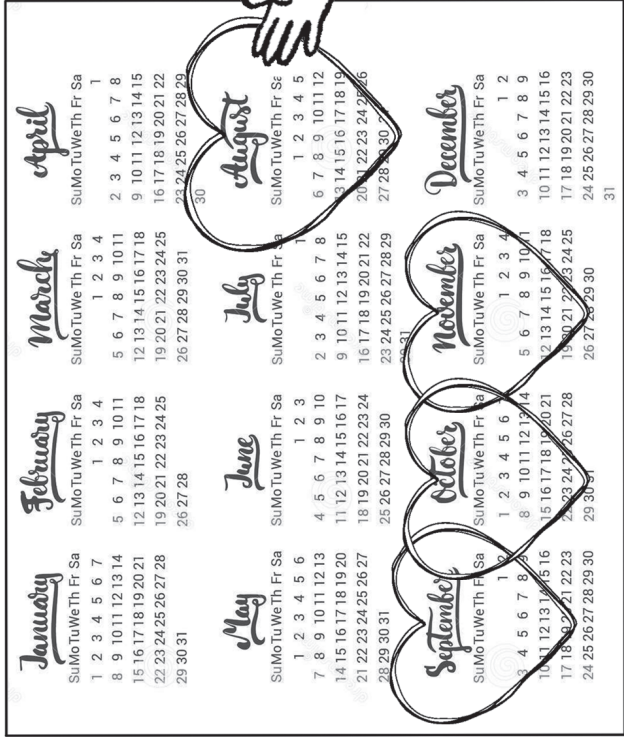 January
Su Mo Tu We Th Fr Sa
1 2 3 4 5 6 7
8 9 10 11 12 13 14
15 16 17 18 19 20 21
22 23 24 25 26 27 28
29 30 31
February
Su Mo Tu We Th Fr Sa
1 2 3 4
5 6 7 8 9 10 11
12 13 14 15 16 17 18
19 20 21 22 23 24 25
26 27 28
March
Su Mo Tu We Th Fr Sa
1 2 3 4
5 6 7 8 9 10 11
12 13 14 15 16 17 18
19 20 21 22 23 24 25
26 27 28 29 30 31
April
Su Mo Tu We Th Fr Sa
1
2 3 4 5 6 7 8
9 10 11 12 13 14 15
16 17 18 19 20 21 22
23 24 25 26 27 28 29
30
May
Su Mo Tu We Th Fr Sa
1 2 3 4 5 6
7 8 9 10 11 12 13
14 15 16 17 18 19 20
21 22 23 24 25 26 27
28 29 30 31
June
Su Mo Tu We Th Fr Sa
1 2 3
4 5 6 7 8 9 10
11 12 13 14 15 16 17
18 19 20 21 22 23 24
25 26 27 28 29 30
July
Su Mo Tu We Th Fr Sa
1
2 3 4 5 6 7 8
9 10 11 12 13 14 15
16 17 18 19 20 21 22
23 24 25 26 27 28 29
30 31
August
Su Mo Tu We Th Fr Sa
1 2 3 4 5
6 7 8 9 10 11 12
13 14 15 16 17 18 19
20 21 22 23 24 25 26
27 28 29 30
September
Su Mo Tu We Th Fr Sa
1 2
3 4 5 6 7 8 9
10 11 12 13 14 15 16
17 18 19 20 21 22 23
24 25 26 27 28 29 30
October
Su Mo Tu We Th Fr Sa
1 2 3 4 5 6 7
8 9 10 11 12 13 14
15 16 17 18 19 20 21
22 23 24 25 26 27 28
29 30 31
November
Su Mo Tu We Th Fr Sa
1 2 3 4
5 6 7 8 9 10 11
12 13 14 15 16 17 18
19 20 21 22 23 24 25
26 27 28 29 30
December
Su Mo Tu We Th Fr Sa
1 2
3 4 5 6 7 8 9
10 11 12 13 14 15 16
17 18 19 20 21 22 23
24 25 26 27 28 29 30
31